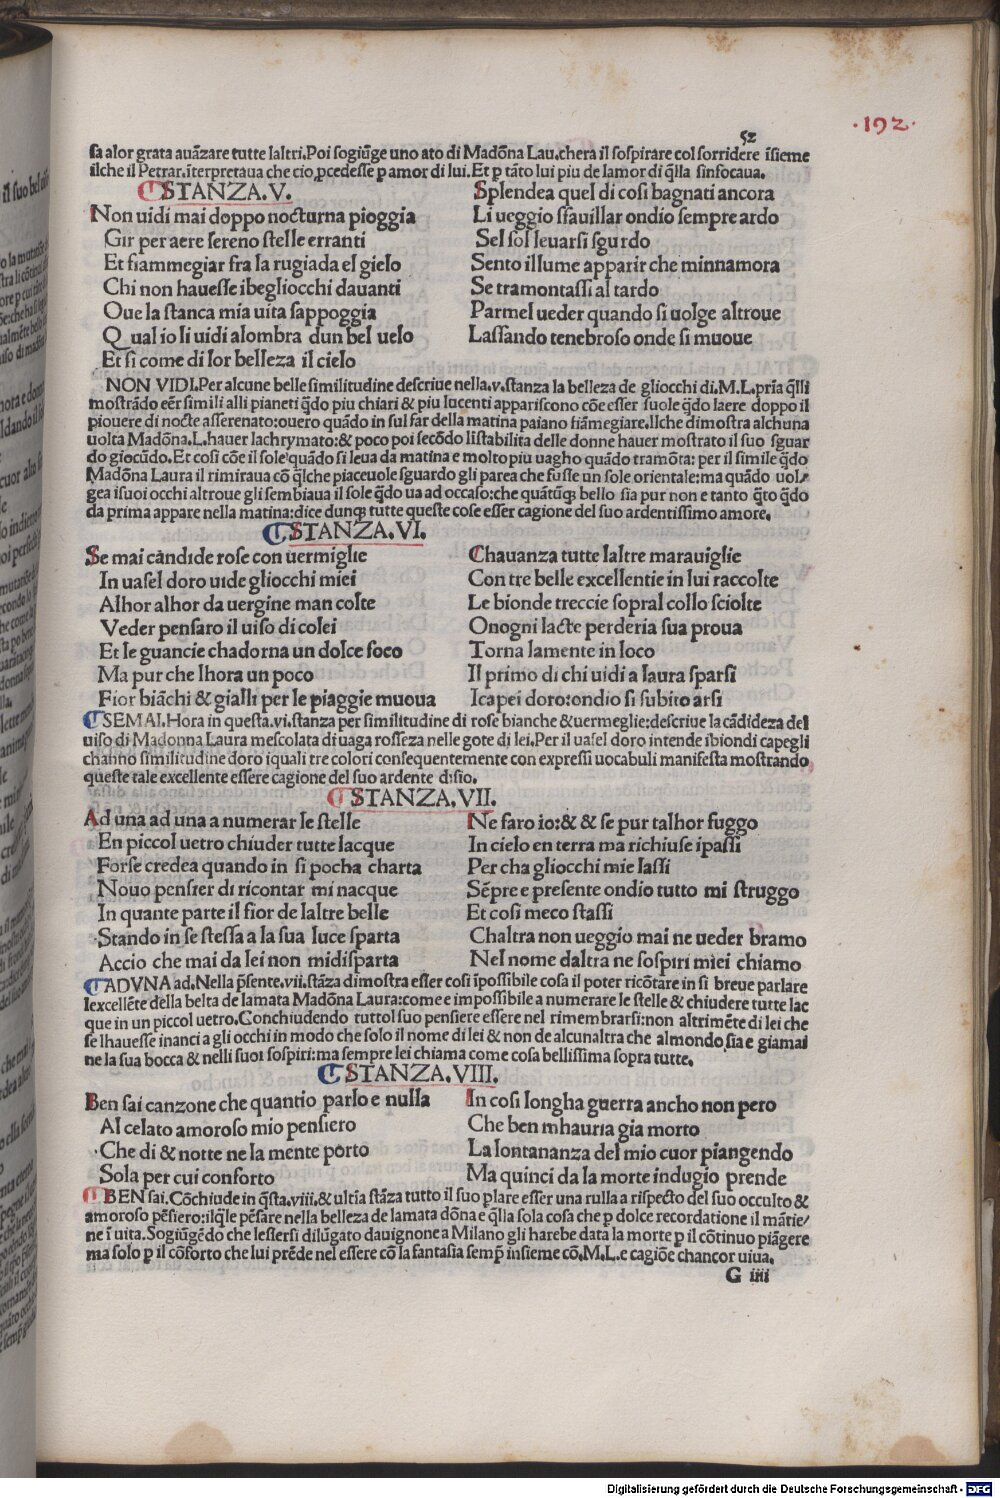 ·192·
52
sa alor grata auāzare tutte laltri.Poi sogiūge uno ato di Madōna Lau.chera il sospirare col sorridere īsieme
ilche il Petrar.īterpretaua che cio ꝓcedesse ꝑ amor di lui.Et ꝑ tāto lui piu de lamor di q̄lla sinfocaua.
STANZA.V.
Non uidi mai doppo nocturna pioggia
Gir per aere sereno stelle erranti
Et fiammegiar fra la rugiada el gielo
Chi non hauesse ibegliocchi dauanti
Oue la stanca mia uita sappoggia
Qual io li uidi alombra dun bel uelo
Et si come di lor belleza il cielo
Splendea quel di cosi bagnati ancora
Li ueggio sfauillar ondio sempre ardo
Sel sol leuarsi sgu rdo
Sento illume apparir che minnamora
Se tramontassi al tardo
Parmel ueder quando si uolge altroue
Lassando tenebroso onde si muoue
NON VIDI.Per alcune belle similitudine descriue nella.v.stanza la belleza de gliocchi di.M.L.pria q̄lli
mostrādo eēr simili alli pianeti q̄do piu chiari & piu lucenti appariscono cōe esser suole q̄do laere doppo il
piouere di nocte asserenato:ouero quādo in sul far della matina paiano fiāmegiare.Ilche dimostra alchuna
uolta Madōna.L.hauer lachrymato:& poco poi secōdo listabilita delle donne hauer mostrato il suo sguar
do giocūdo.Et cosi cōe il sole quādo si leua da matina e molto piu uagho quādo tramōta: per il simile q̄do
Madōna Laura il rimiraua cō q̄lche piaceuole sguardo gli parea che fusse un sole orientale:ma quādo uol⸗
gea isuoi occhi altroue gli sembiaua il sole q̄do ua ad occaso:che quātūqꝫ bello sia pur non e tanto q̄to q̄do
da prima appare nella matina:dice dunqꝫ tutte queste cose esser cagione del suo ardentissimo amore.
STANZA.VI.
Se mai candide rose con uermiglie
In uasel doro uide gliocchi miei
Alhor alhor da uergine man colte
Veder pensaro il uiso di colei
Et le guancie chadorna un dolce foco
Ma pur che lhora un poco
Fior biāchi & gialli per le piaggie muoua
Chauanza tutte laltre marauiglie
Con tre belle excellentie in lui raccolte
Le bionde treccie sopral collo sciolte
Onogni lacte perderia sua proua
Torna lamente in loco
Il primo di chi uidi a laura sparsi
Icapei doro:ondio si subito arsi
SEMAI.Hora in questa.vi.stanza per similitudine di rose bianche & uermeglie:descriue la cādideza del
uiso di Madonna Laura mescolata di uaga rosseza nelle gote di lei.Per il uasel doro intende ibiondi capegli
channo similitudine doro iquali tre colori consequentemente con expressi uocabuli manifesta mostrando
queste tale excellente essere cagione del suo ardente disio.
STANZA.VII.
Ad una ad una a numerar le stelle
En piccol uetro chiuder tutte lacque
Forse credea quando in si pocha charta
Nouo pensier di ricontar mi nacque
In quante parte il fior de laltre belle
Stando in se stessa a la sua luce sparta
Accio che mai da lei non midisparta
Ne faro io:& & se pur talhor fuggo
In cielo en terra ma richiuse ipassi
Per cha gliocchi mie lassi
Sēpre e presente ondio tutto mi struggo
Et cosi meco stassi
Chaltra non ueggio mai ne ueder bramo
Nel nome daltra ne sospiri miei chiamo
ADVNA ad.Nella p̄sente.vii.stāza dimostra esser cosi īpossibile cosa il poter ricōtare in si breue parlare
lexcellēte della belta de lamata Madōna Laura:come e impossibile a numerare le stelle & chiudere tutte lac
que in un piccol uetro.Conchiudendo tuttol suo pensiere essere nel rimembrarsi:non altrimēte di lei che
se lhauesse inanci a gli occhi in modo che solo il nome di lei & non de alcunaltra che almondo sia e giamai
ne la sua bocca & nelli suoi sospiri:ma sempre lei chiama come cosa bellissima sopra tutte.
STANZA.VIII.
Ben sai canzone che quantio parlo e nulla
Al celato amoroso mio pensiero
Che di & notte ne la mente porto
Sola per cui conforto
In cosi longha guerra ancho non pero
Che ben mhauria gia morto
La lontananza del mio cuor piangendo
Ma quinci da la morte indugio prende
BEN sai. Cōchiude in q̄sta.viii.& ultīa stāza tutto il suo ꝑlare esser una nulla a rispecto del suo occulto &
amoroso pēsiero:ilq̄le pēsare nella belleza de lamata dōna e q̄lla sola cosa che ꝑ dolce recordatione il mātie⸗
ne ī uita.Sogiūgēdo che lessersi dilūgato dauignone a Milano gli harebe data la morte ꝑ il cōtinuo piāgere
ma solo ꝑ il cōforto che lui prēde nel essere cō la fantasia semp̄ insieme cō.M.L.e cagiōe chancor uiua.
G iiii
Digitalisierung gefördert durch die Deutsche Forschungsgemeinschaft · DFG